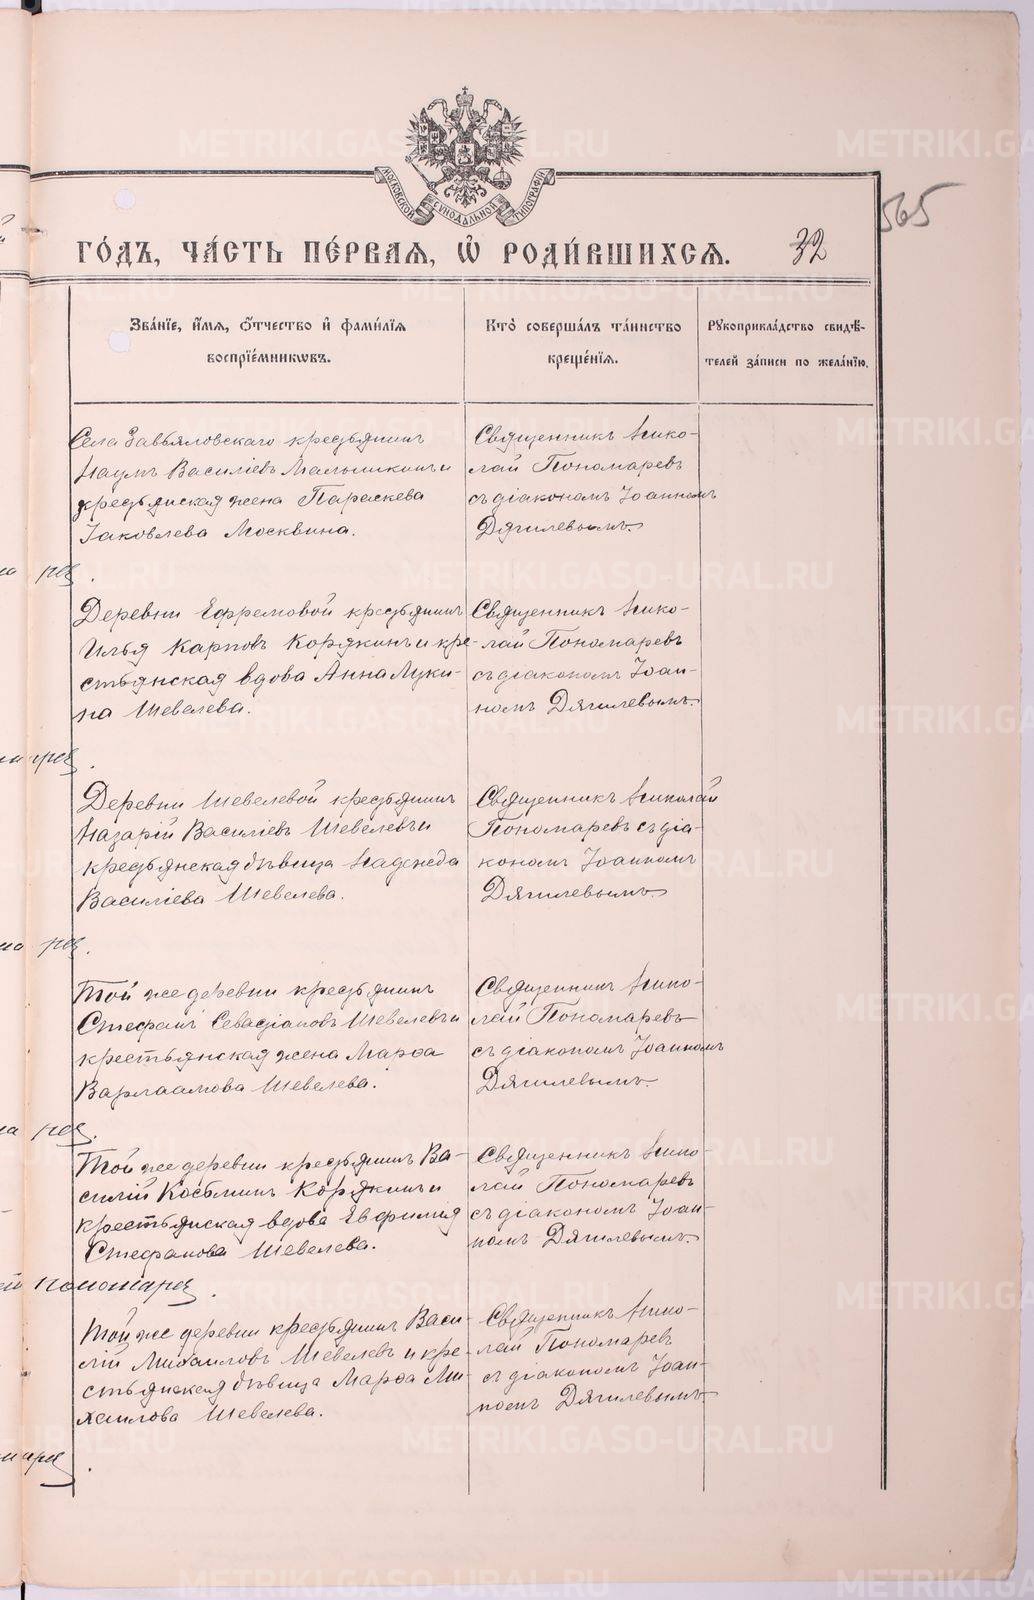 МОСКОВСКОЙ СУНОДАЛЬНОЙ ТИПОГРАФІИ
565
ГО́ДЪ, ЧА́СТЬ ПЕ́РВАѦ, Ѡ҆ РОДИ́ВШИХСѦ.
32
Зва́нїе, и҆́мѧ, ѻ҆́тчество и҆ фами́лїѧ
воспрїе́мникѡвъ.
Кто̀ соверша́лъ та́инство
креще́нїѧ.
Рꙋкоприкла́дство свидѣ́-
телей за́писи по жела́нїю.
Села Завьяловскаго крестьянин
Наумъ Василіевъ Мальчикинъ и
крестьянская жена Параскева
Іаковлева Москвина.
Священникъ Нико-
лай Пономаревъ
съ діакономъ Іоанномъ
Дягилевымъ.
на рев.
Деревни Ефремовой крестьянинъ
Илья Карповъ Корякинъ и кре-
стьянская вдова Анна Луки-
на Шевелева.
Священникъ Нико-
лай Пономаревъ
съ діакономъ Іоан-
номъ Дягилевымъ.
Деревни Шевелевой крестьянинъ
Назарій Василіевъ Шевелевъ и
крестьянская дѣвица Надежда
Василіева Шевелева.
Священникъ Николай
Пономаревъ съ діа-
кономъ Іоанномъ
Дягилевымъ.
Той же деревни крестьянинъ
Стефанъ Севастіановъ Шевелевъ и
крестьянская жена Марѳа
Варлаамова Шевелева.
Священникъ Нико-
лай Пономаревъ
съ діакономъ Іоанномъ
Дягилевымъ.
Той же деревни крестьянинъ Ва-
силій Косьминъ Корякинъ и
крестьянская вдова Евфимія
Стефанова Шевелева.
Священникъ Нико-
лай Пономаревъ
съ діакономъ Іоан-
номъ Дягилевымъ.
Пономарев.
Той же деревни крестьянинъ Васи-
лій Михаиловъ Шевелевъ и кре-
стьянская дѣвица Марѳа Ми-
хаилова Шевелева.
Священникъ Нико-
лай Пономаревъ
съ діакономъ Іоан-
номъ Дягилевымъ.
METRIKI.GASO-URAL.RU